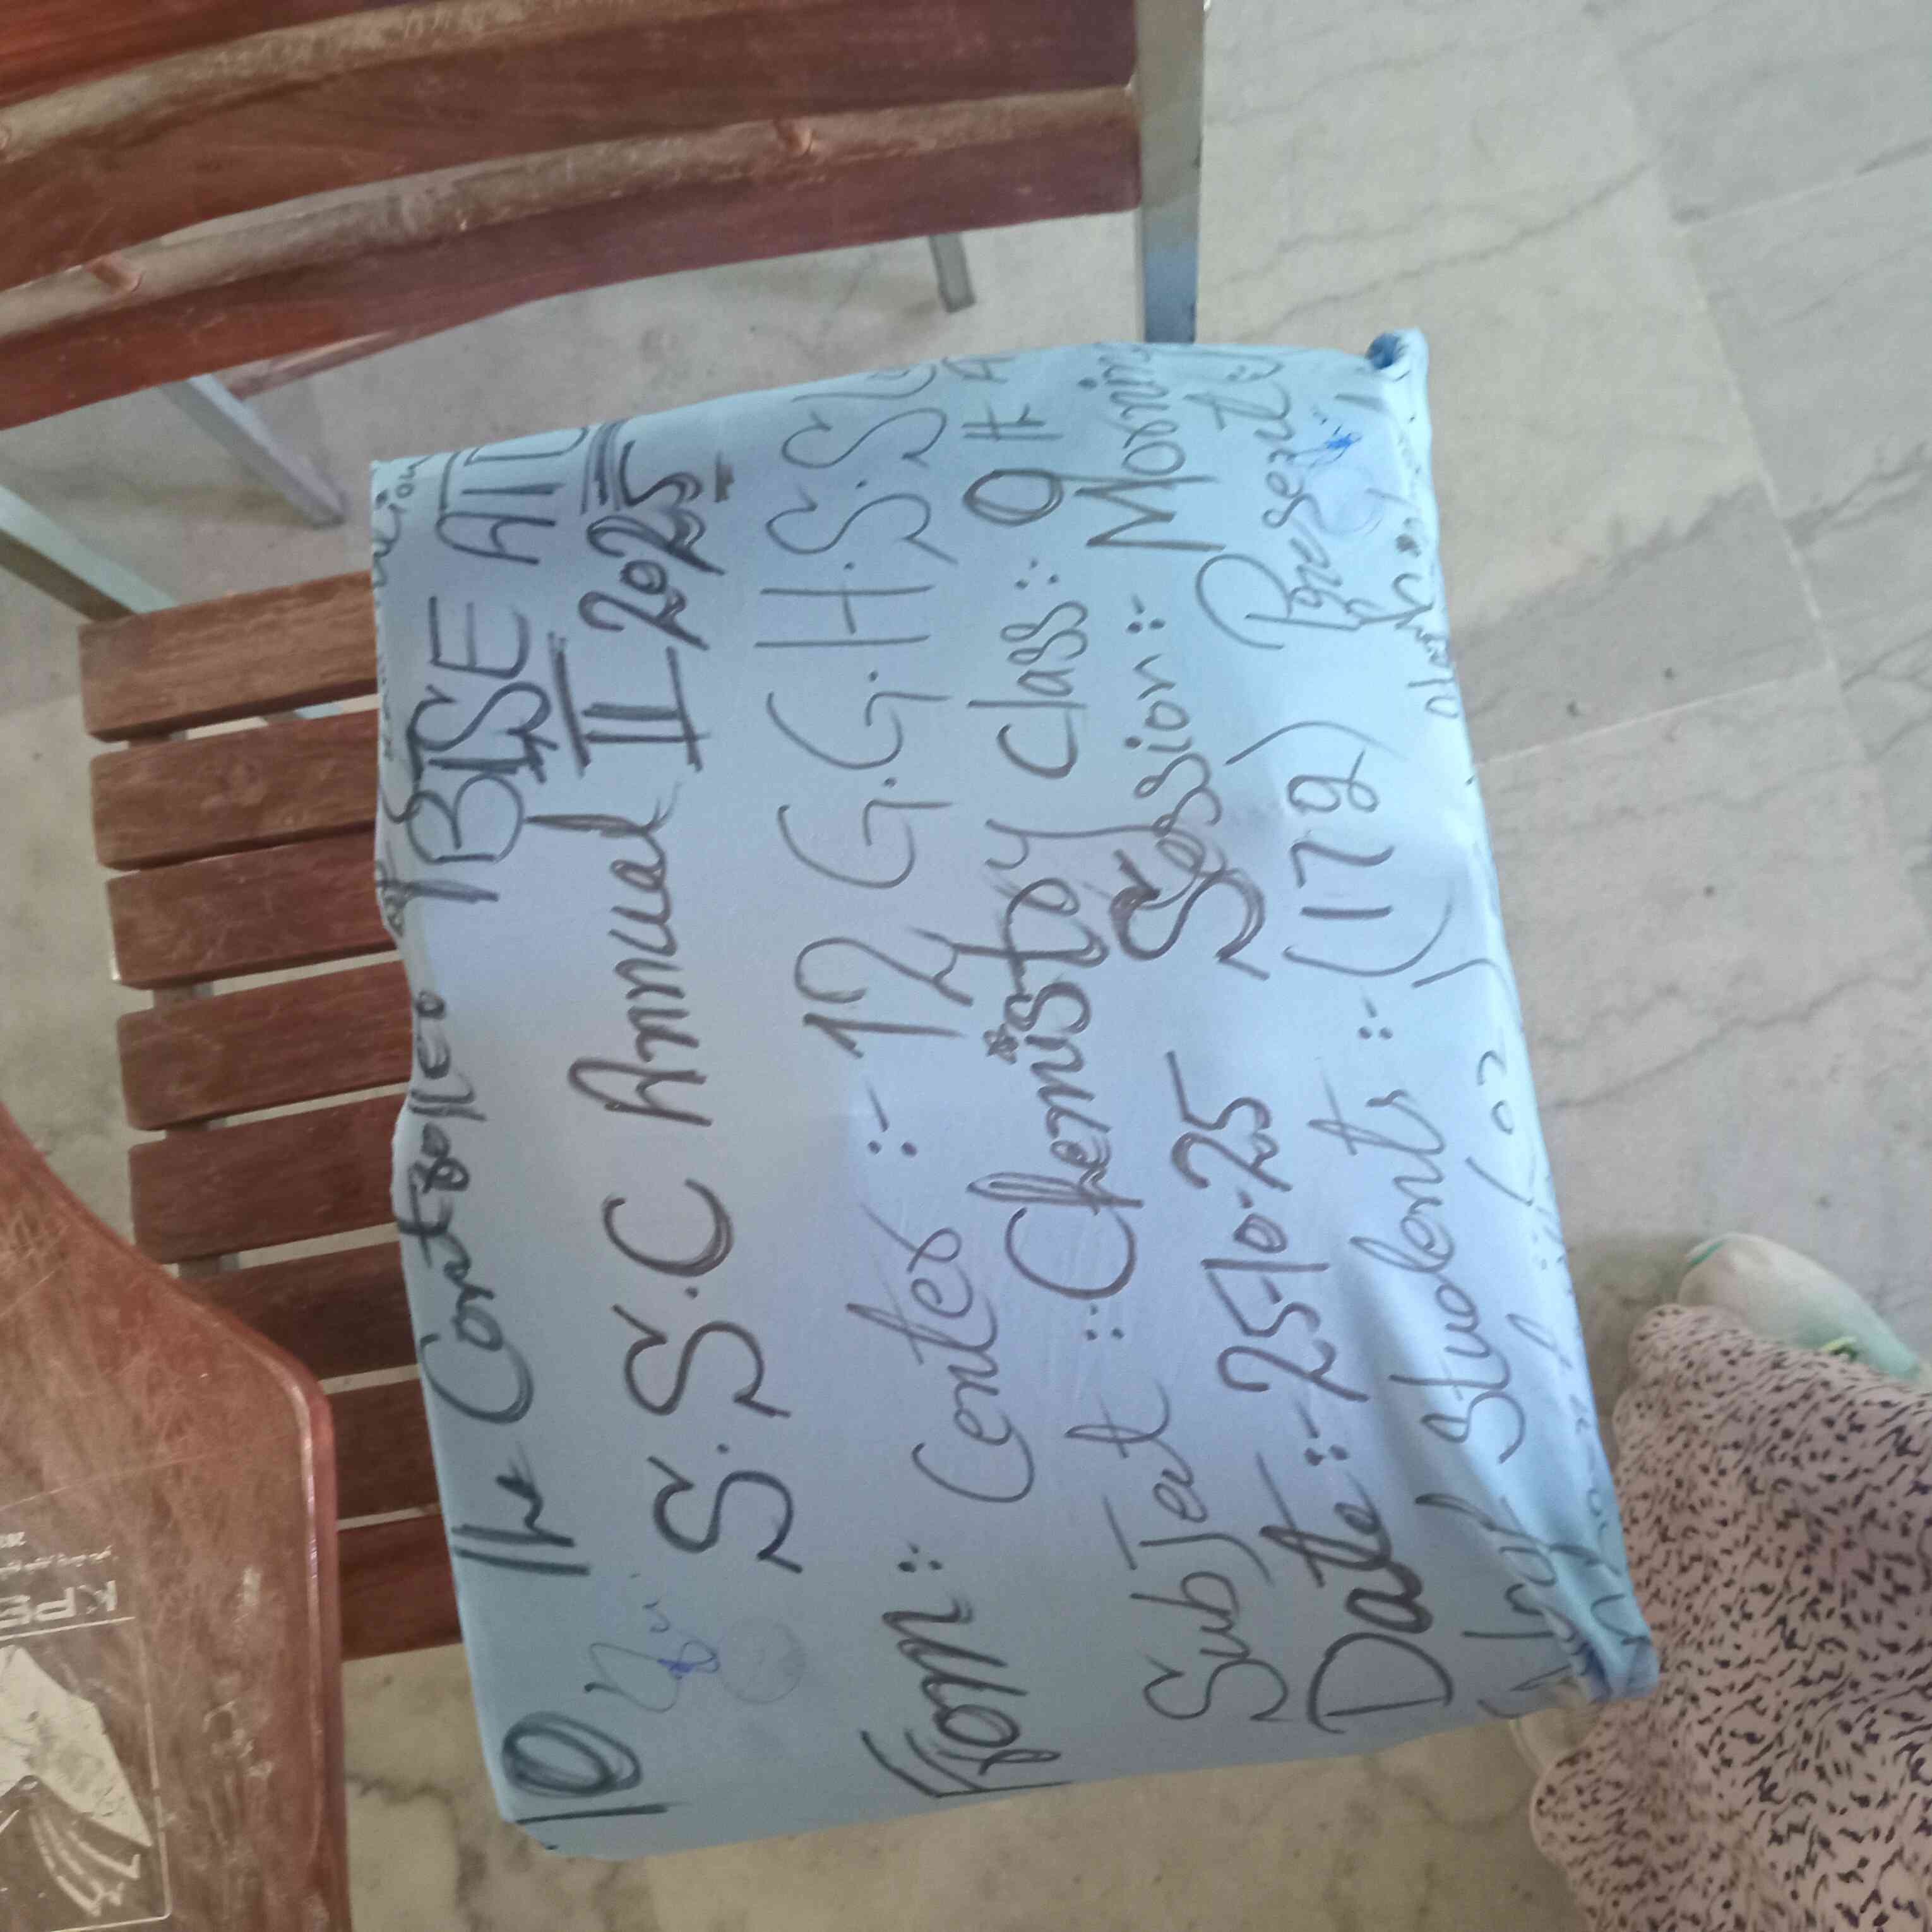 The Controller of BISE ATD
S.S.C Annual II-2025
From: Center :- 12 G.G.H.S.S
Subject :- Chemistry Class: 9th A
Date :- 25-10-25 Session :- Morning
No of Students :- (178) Present
KPS